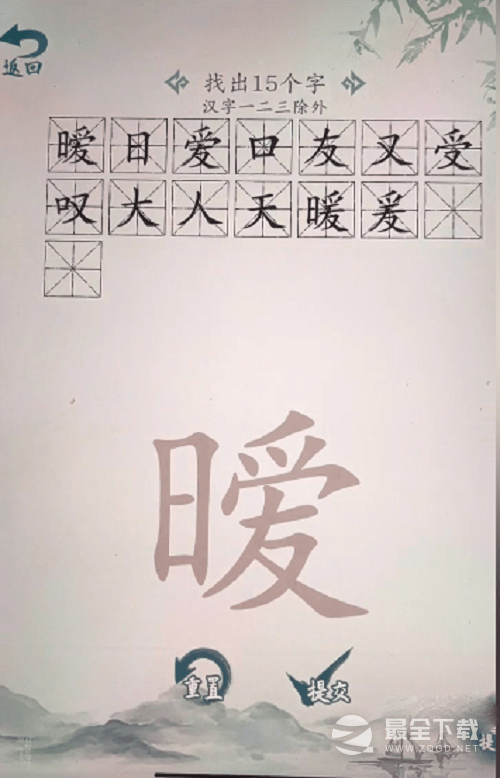 返回
找出15个字
汉字一二三除外
暧日爱口友又受
叹大人天暖爰
暧
重置
提交
最全下载
www.zqgd.net